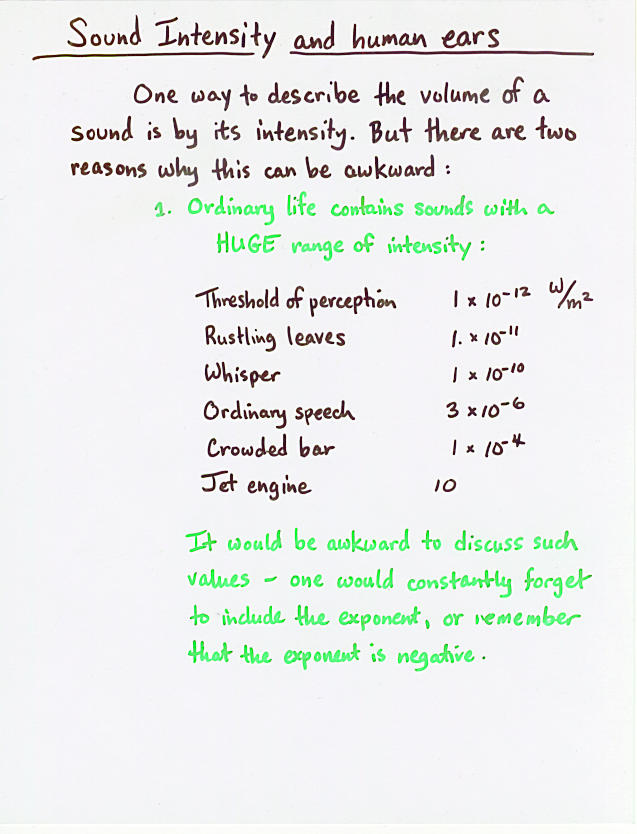 Sound Intensity and human ears
One way to describe the volume of a
sound is by its intensity. But there are two
reasons why this can be awkward:
1. Ordinary life contains sounds with a
HUGE range of intensity:
Threshold of perception 1 × 10⁻¹² W/m²
Rustling leaves 1. × 10⁻¹¹
Whisper 1 × 10⁻¹⁰
Ordinary speech 3 × 10⁻⁶
Crowded bar 1 × 10⁻⁴
Jet engine 10
It would be awkward to discuss such
values - one would constantly forget
to include the exponent, or remember
that the exponent is negative.